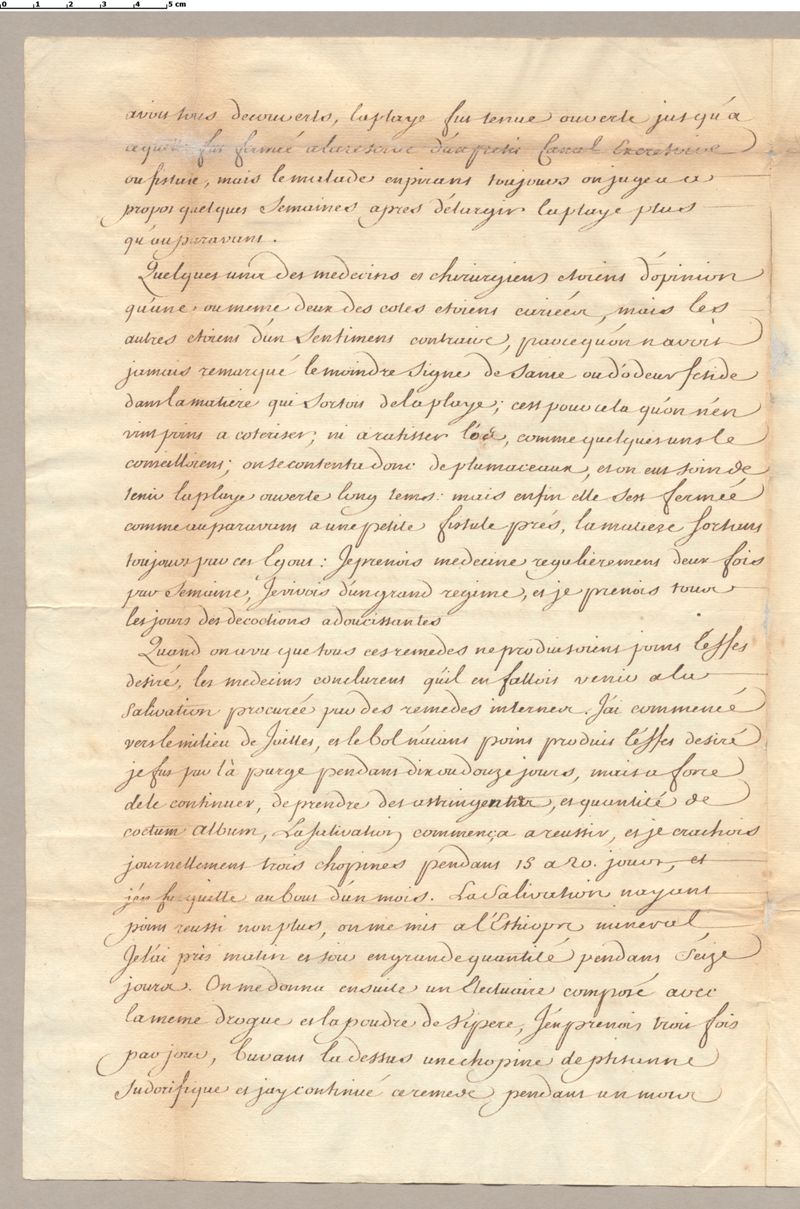 0 1 2 3 4 5 cm
avois tous decouverts, la playe fut tenue ouverte jusqu'a
ce qu'elle fut fermée a la reserve d'un petit Canal Excretoire
ou fistule, mais le malade empirant toujours on jugea a
propos quelques Semaines apres d'elargir la playe plus
qu'auparavant.
Quelques unx des medecins et chirurgiens etoient d'opinion
qu'une ou meme deux des cotes etoient cariées, mais les
autres etoient d'un Sentiment contraire, parce qu'on n'avoit
jamais remarqué le moindre Signe de Sanie ou d'odeur fetide
dans la matiere qui Sortoit de la playe; c'est pour cela qu'on n'en
vint point a coteriser, ni a ratisser l'os, comme quelques uns le
conseilloient; on se contenta donc de plumaceaux, et on eut soin de
tenir la playe ouverte long tems: mais enfin elle s'est fermée
comme auparavant a une petite fistule prés, la matiere sortant
toujours par cet Egout: Je prenois medecine regulierement deux fois
par Semaine, Je vivois d'un grand regime, et je prenois tous
les jours des decoctions adoucissantes
Quand on a vu que tous ces remedes ne produisoient point l'effet
desiré, les medecins conclurent qu'il en falloit venir a la
Salivation procurée par des remedes internes. J'ai commencé
vers le milieu de Juillet, et le bol n'aiant point produit l'effet desiré
je fus par là purgé pendant dix ou douze jours, mais a force
de le continuer, de prendre des astringents, et quantité de
coctum album, La Salivation commença a reussir, et je crachois
journellement trois chopines pendant 15 a 20. jours, et
j'en fus quitte au bout d'un mois. La Salivation n'ayant
point reussi non plus, on me mit a l'Ethiops mineral,
Je l'ai pris matin et soir en grande quantité pendant Seize
jours. On me donna ensuite un Electuaire composé avec
la meme drogue et la poudre de Vipere, J'en prenois trois fois
par jour, buvant la dessus une chopine de phtisanne
Sudorifique et j'ay continué ce remede pendant un mois